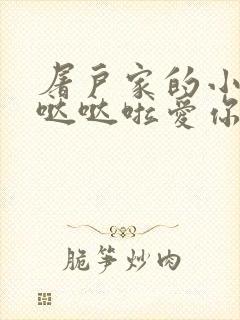 屠户家的小
哒哒啦爱你
脆笋炒肉